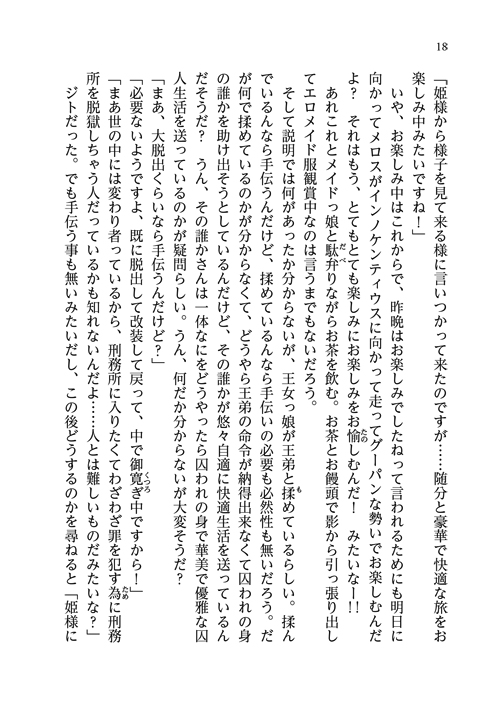 18
「姫様から様子を見て来る様に言いつかって来たのですが……随分と豪華で快適な旅をお
楽しみ中みたいですね！」
　いや、お楽しみ中はこれからで、昨晩はお楽しみでしたねって言われるためにも明日に
向かってメロスがインノケンティウスに向かって走ってグーパンな勢いでお楽しむんだ
よ？　それはもう、とてもとても楽しみにお楽しみをお愉しむんだ！　みたいなー!!
　あれこれとメイドっ娘と駄弁りながらお茶を飲む。お茶とお饅頭で影から引っ張り出し
てエロメイド服観賞中なのは言うまでもないだろう。
　そして説明では何があったか分からないが、王女っ娘が王弟と揉めているらしい。揉ん
でいるんなら手伝うんだけど、揉めているんなら手伝いの必要も必然性も無いだろう。だ
が何で揉めているのかが分からなくて、どうやら王弟の命令が納得出来なくて囚われの身
の誰かを助け出そうとしているんだけど、その誰かが悠々自適に快適生活を送っているん
だそうだ？　うん、その誰かさんは一体なにをどうやったら囚われの身で華美で優雅な囚
人生活を送っているのかが疑問らしい。うん、何だか分からないが大変そうだ？
「まあ、大脱出くらいなら手伝うんだけど？」
「必要ないようですよ、既に脱出して改装して戻って、中で御寛ぎ中ですから！」
「まあ世の中には変わり者っているから、刑務所に入りたくてわざわざ罪を犯す為に刑務
所を脱獄しちゃう人だっているかも知れないんだよ……人とは難しいものだみたいな？」
　ジトだった。でも手伝う事も無いみたいだし、この後どうするのかを尋ねると「姫様に